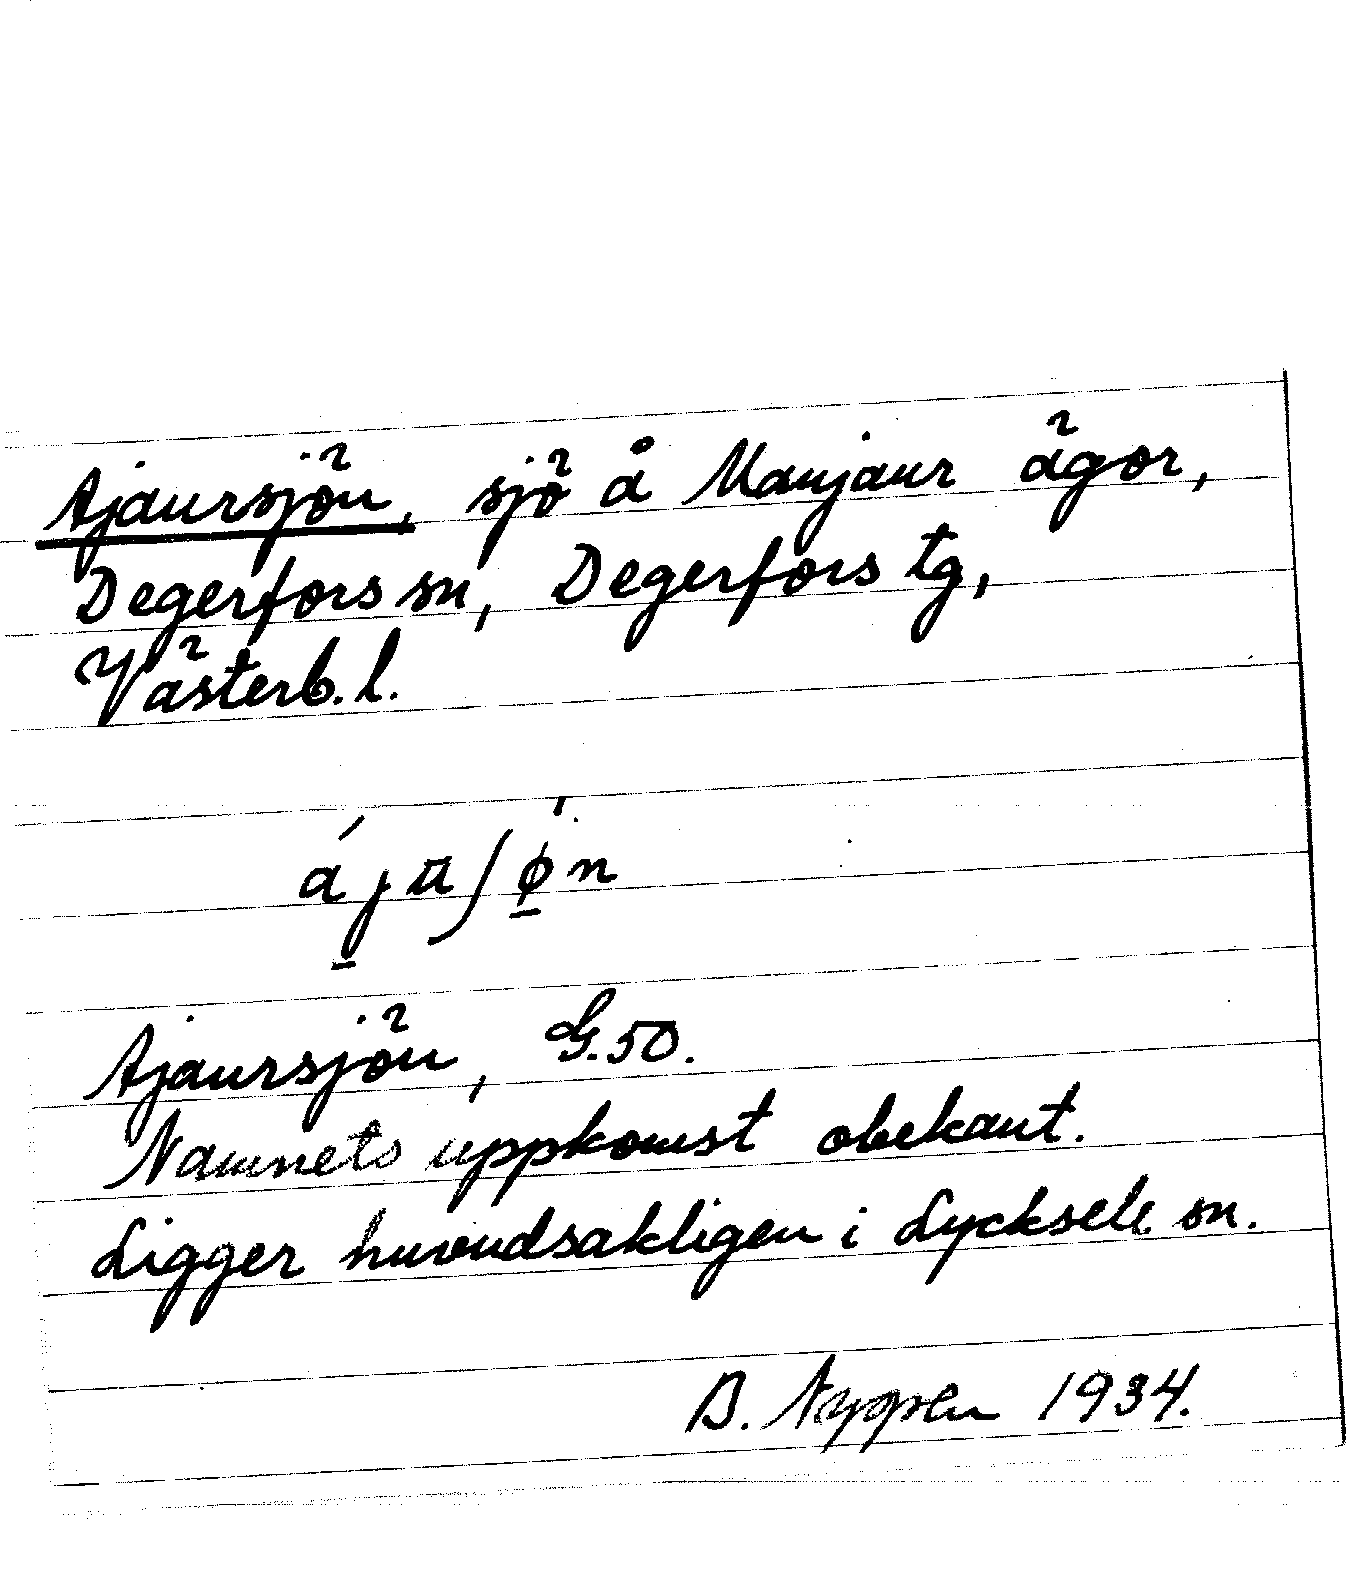 Ajaursjön, sjö å Manjaur ägor,
Degerfors sn, Degerfors tg,
Västerb. l.
Ajaursjön, G. 50.
Namnets uppkomst obekant.
Ligger huvudsakligen i Lycksele sn.
B. 1934.